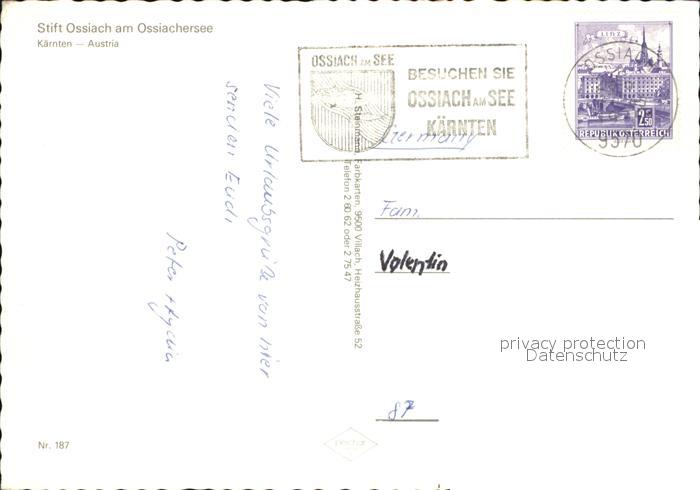 Stift Ossiach am Ossiachersee
Kärnten — Austria
OSSIACH AM SEE
BESUCHEN SIE
OSSIACH AM SEE
KÄRNTEN
LINZ
2.50
REPUBLIK ÖSTERREICH
OSSIACH
9570
Germany
Viele Urlaubsgrüße von hier
senden Euch
Peter +
H. Steinmann, Farbkarten, 9500 Villach, Heizhausstraße 52
Telefon 2 60 62 oder 2 75 47
Fam.
Valentin
privacy protection
Datenschutz
87
Nr. 187